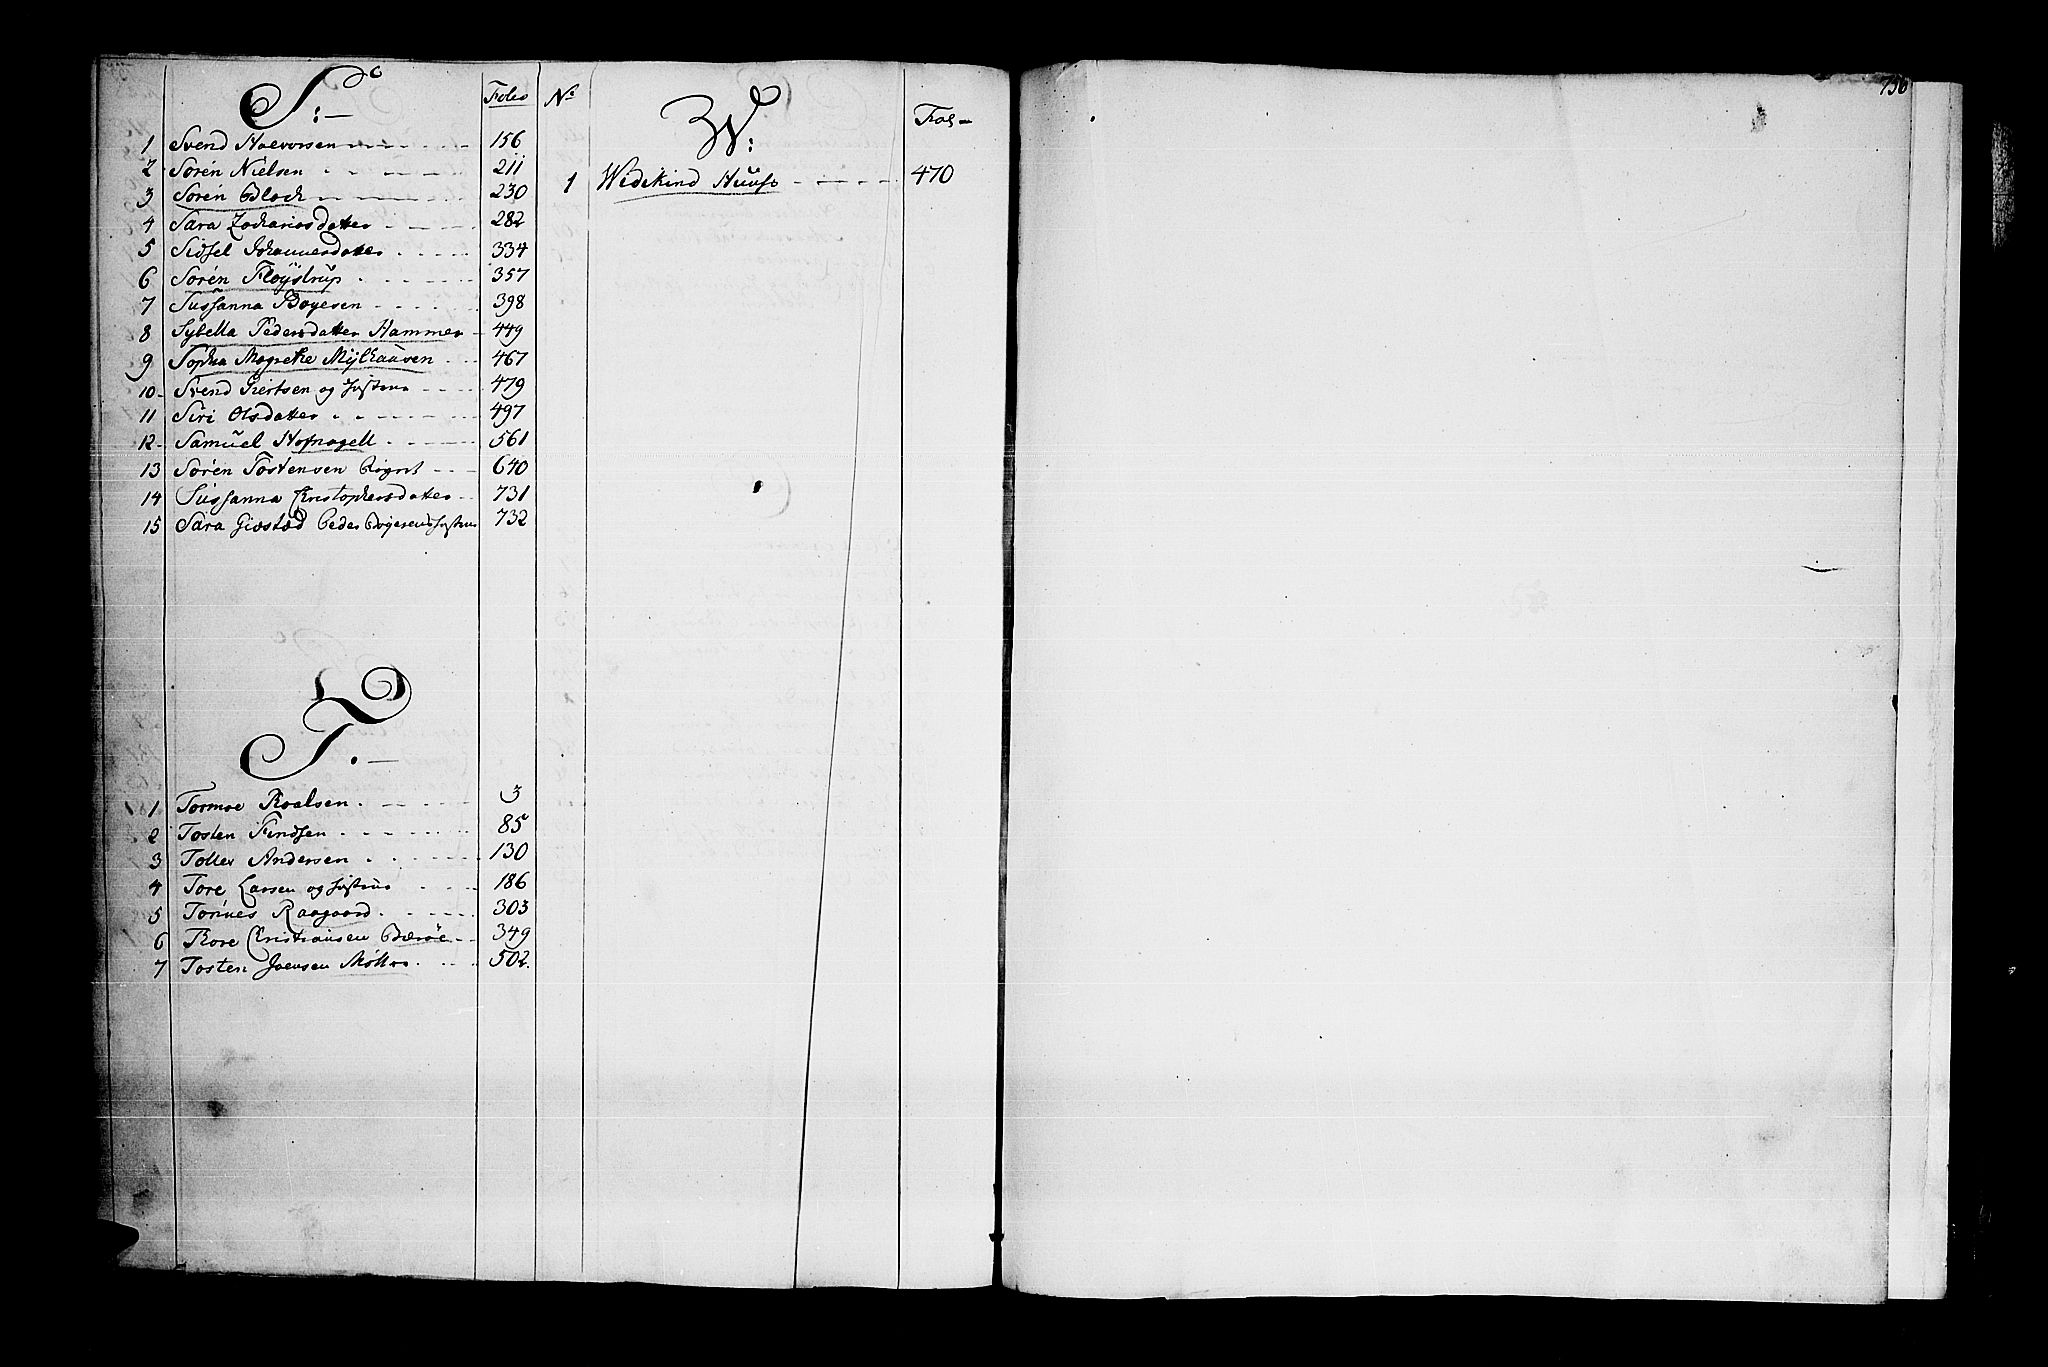 S:
Folio
1 Svend Halvorsen 156
2 Sørén Nielsen 211
3 Sørén Bloch 230
4 Sara Zachariasdatter 282
5 Sidsel Johannesdatter 334
6 Sørén Fløÿstrup 357
7 Sussanna Boyesen 398
8 Sybella Pedersdatter Hammer 449
9 Sophia Magrethe Mÿlhaüsen 467
10 Svend Giertsen og Hustrue 479
11 Siri Olsdatter 497
12 Samuel Hofnagell 561
13 Sørén Tostensen 640
14 Sussanna Christophersdatter 731
15 Sara Peder Boyesens Hustrue 732
T.
1 Tormoe Roalsen 3
2 Tosten Findsen 85
3 Toller Andersen 130
4 Tore Larsen og Hustrue 186
5 Tønnes Raagaard 303
6 Thore Christiansen Bærøe 349
7 Tosten Joensen Møller 502.
No
W:
Fol
1 Wedekind Huus 470
736